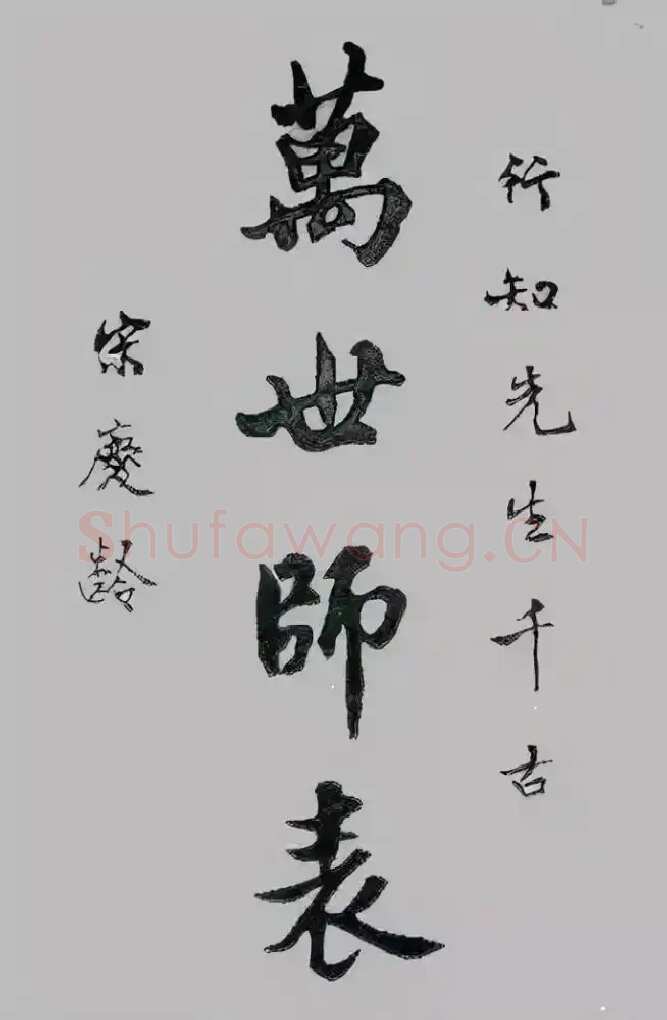 行知先生千古
萬世師表
宋慶齡
Shufawang.CN